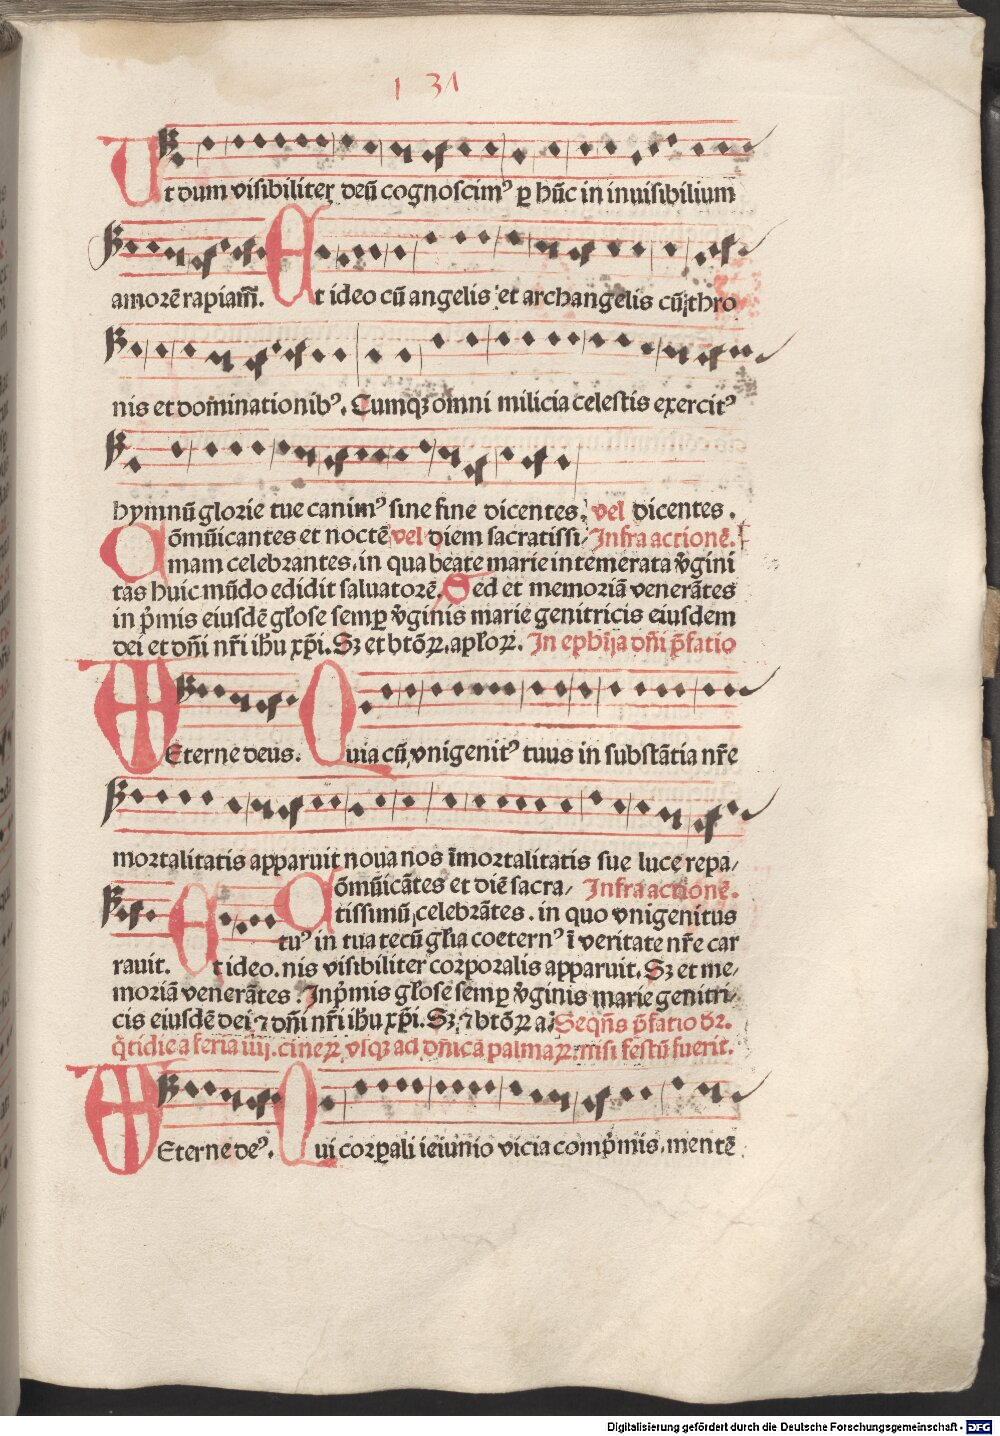 131
Ut dum visibiliter deū cognoscimꝰ ꝑ hūc in inuisibilium
amorē rapiam̄. Et ideo cū angelis et archangelis cū thro
nis et dominationibꝰ. Cumqꝫ omni milicia celestis exercitꝰ
hymnū glorie tue canimꝰ sine fine dicentes, vel dicentes.
Cōmūicantes et noctē vel diem sacratissi/ Infra actionē.
mam celebrantes. in qua beate marie intemerata v̓gini
tas huic mūdo edidit saluatorē. Sed et memoriā venerātes
in p̓mis eiusdē gl'ose semꝑ v̓ginis marie genitricis eiusdem
dei et dn̄i nr̄i ih̄u xp̄i. Sꝫ et btōꝝ. apl'oꝝ. In eph̄ija dn̄i p̄fatio
VEterne deus. Quia cū vnigenitꝰ tuus in substātia nr̄e
mortalitatis apparuit noua nos īmortalitatis sue luce repa/
Cōmūicātes et diē sacra/ Infra actionē.
tissimū celebrātes. in quo vnigenitus
tuꝰ in tua tecū gl'ia coeternꝰ ī veritate nr̄e car
rauit. Et ideo. nis visibiliter corporalis apparuit. Sꝫ et me/
moriā venerātes. Inp̓mis gl'ose semꝑ v̓ginis marie genitri/
cis eiusdē dei ⁊ dn̄i nr̄i ih̄u xp̄i. Sꝫ ⁊ btōꝝ a. Seqn̄s p̄fatio dr̄.
q̓tidie a feria iiij. cineꝝ vsqꝫ ad dn̄icā palmaꝝ: nisi festū fuerit.
VEterne deꝰ. Qui corꝑali ieiunio vicia comp̓mis. mentē
Digitalisierung gefördert durch die Deutsche Forschungsgemeinschaft - DFG